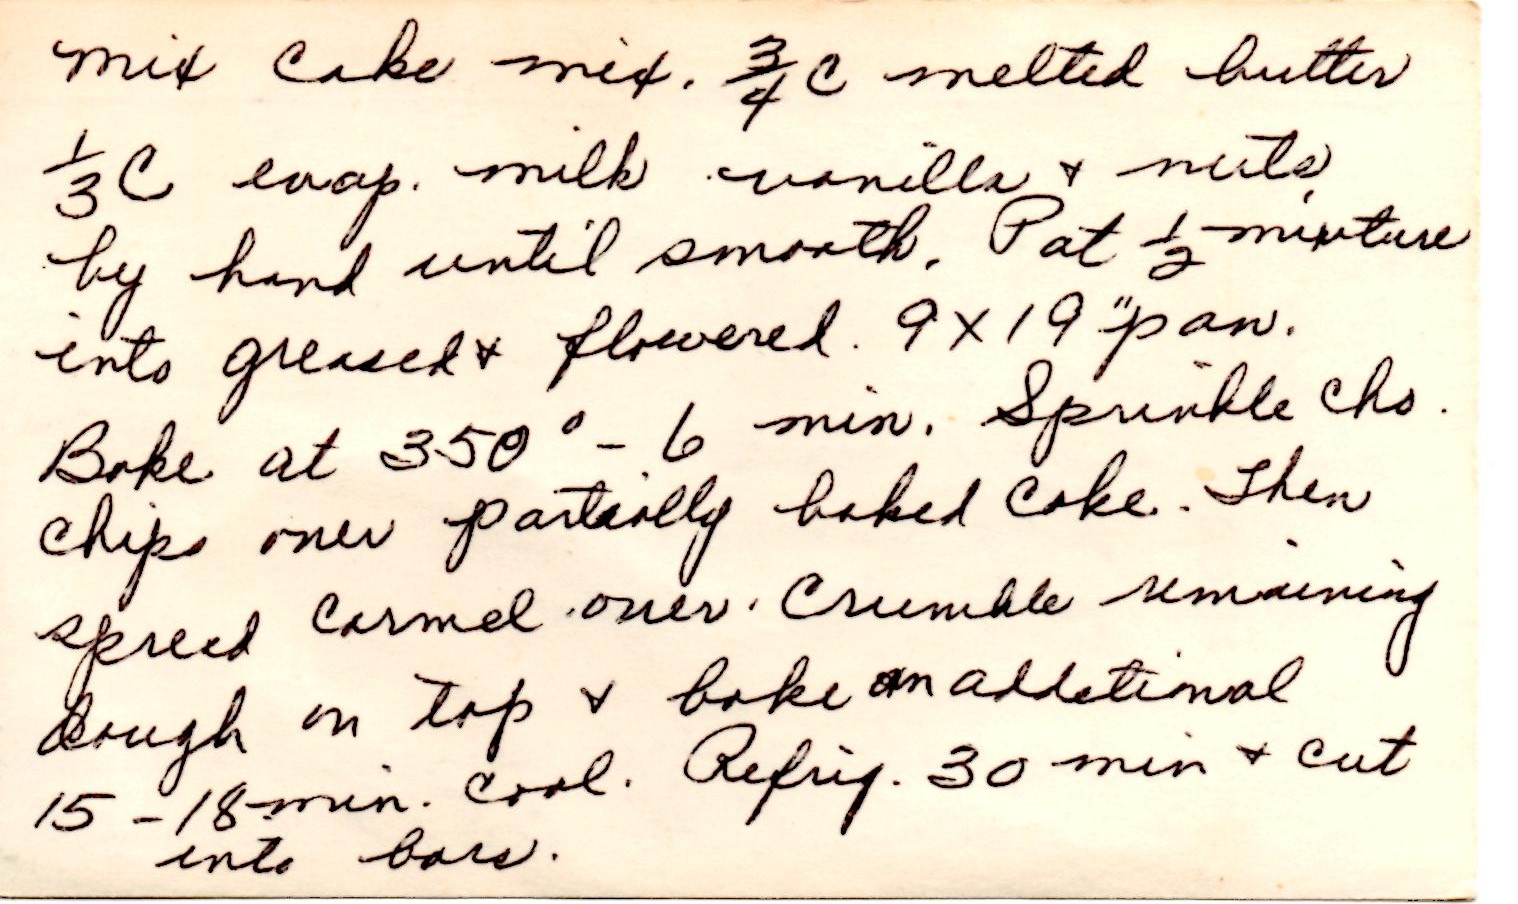 mix cake mix. 3/4 C melted butter
1/3 C evap. milk vanilla & nuts
by hand until smooth. Pat 1/2 mixture
into greased & flowered. 9 x 19" pan.
Bake at 350° - 6 min. Sprinkle cho.
chips over partially baked cake. Then
spread carmel over. Crumble remaining
dough on top & bake an additional
15 - 18 min. cool. Refrig. 30 min & cut
into bars.